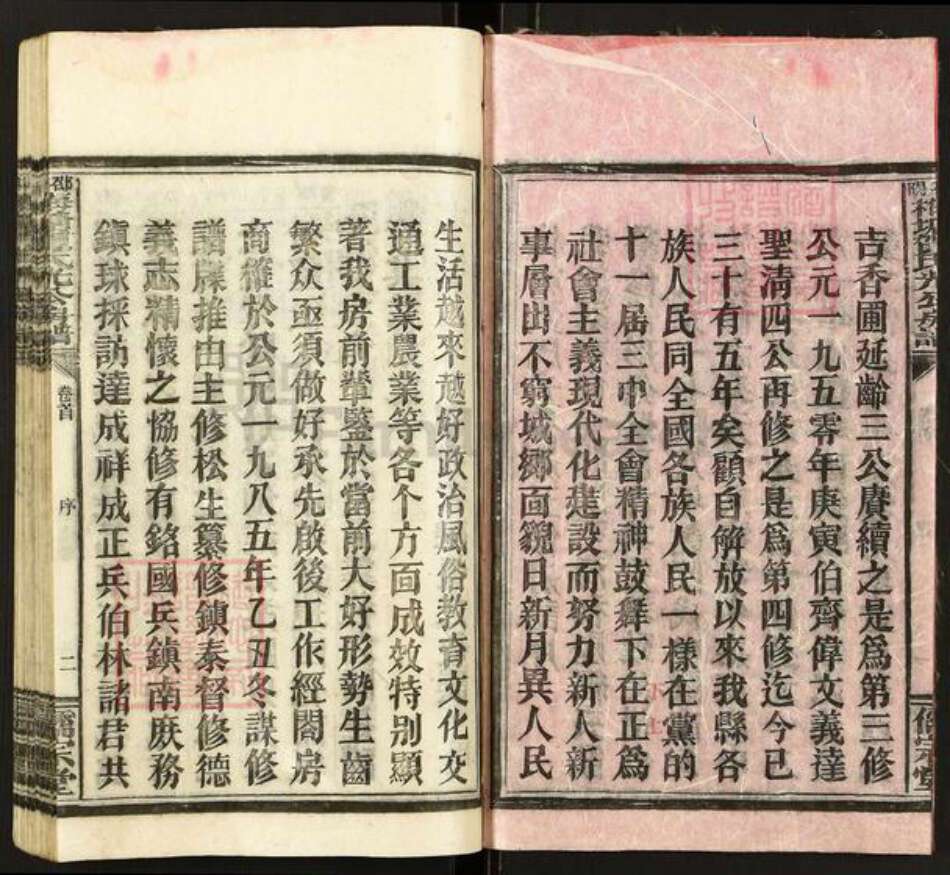 吉香圃延齡三公賡續之是爲第三修
公元一九五零年庚寅伯齊偉文義達
聖清四公再修之是爲第四修迄今已
三十有五年矣顧自解放以來我縣各
族人民同全國各族人民一樣在黨的
十一届三中全會精神鼓舞下在正爲
社會主義現代化建設而努力新人新
事層出不窮城鄉面貌日新月異人民
生活越來越好政治風俗教育文化交
通工業農業等各个方面成效特别顯
著我房前輩鑒於當前大好形勢生齒
繁众亟須做好承先啟後工作經閤房
商榷於公元一九八五年乙丑冬謀修
譜牒推由主修松生纂修鎮泰督修德
義志精懷之協修有銘國兵鎮南庶務
鎮球採訪達成祥成正兵伯林諸君共
卷首
序
二
儒宗堂